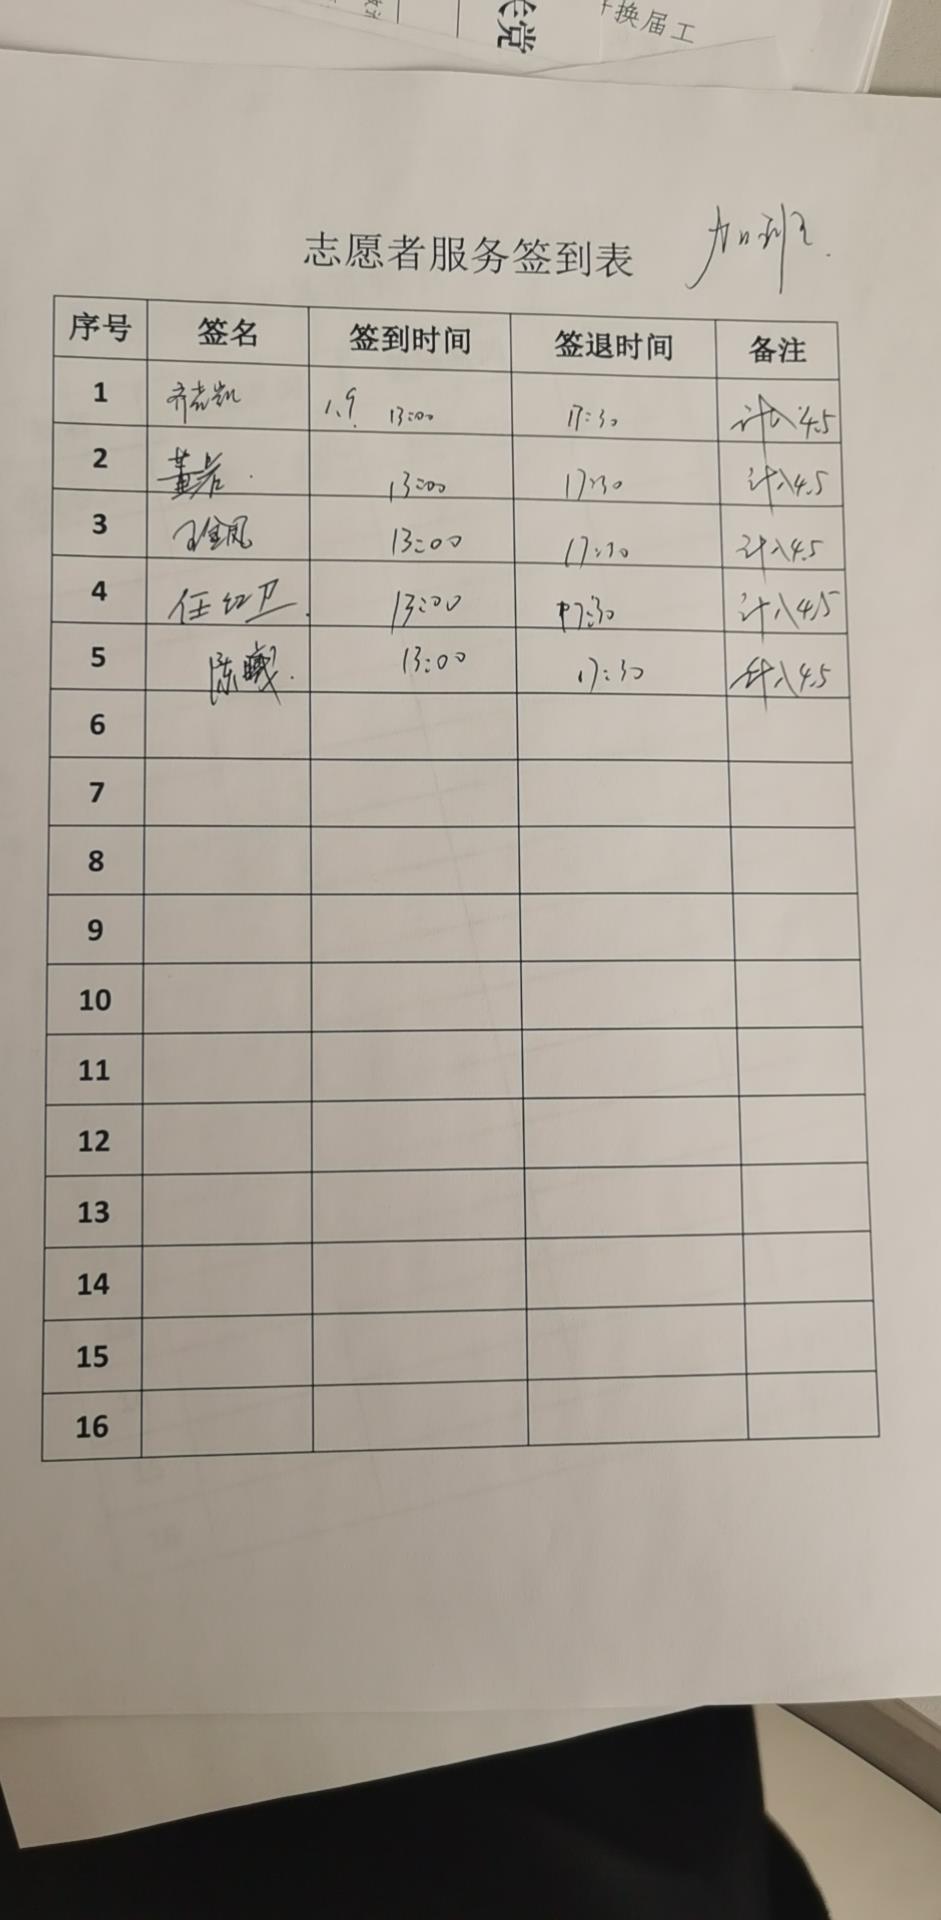 党
换届工
志愿者服务签到表 加班
序号 签名 签到时间 签退时间 备注
1 齐志凯 1.9 13:00 17:30 计入4.5
2 董岩 13:00 17:30 计入4.5
3 王金凤 13:00 17:30 计入4.5
4 任红卫 13:00 17:30 计入4.5
5 陈曦 13:00 17:30 计入4.5
6
7
8
9
10
11
12
13
14
15
16